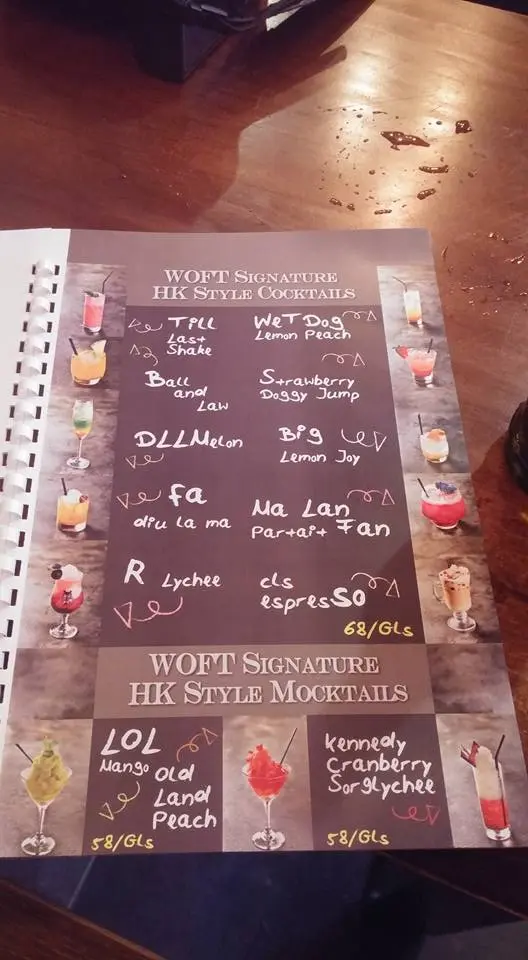 WOFT SIGNATURE
HK STYLE COCKTAILS
TiLL
Last
Shake
WeT Dog
Lemon Peach
Ball
and
Law
Strawberry
Doggy Jump
DLLMelon
Big
Lemon Joy
fa
diu la ma
Ma Lan
Par+ai+ Fan
R Lychee
cls
espresSO
68/GLs
WOFT SIGNATURE
HK STYLE MOCKTAILS
LOL
Mango Old
Land
Peach
58/GLs
kennedy
Cranberry
Sorglychee
58/GLs